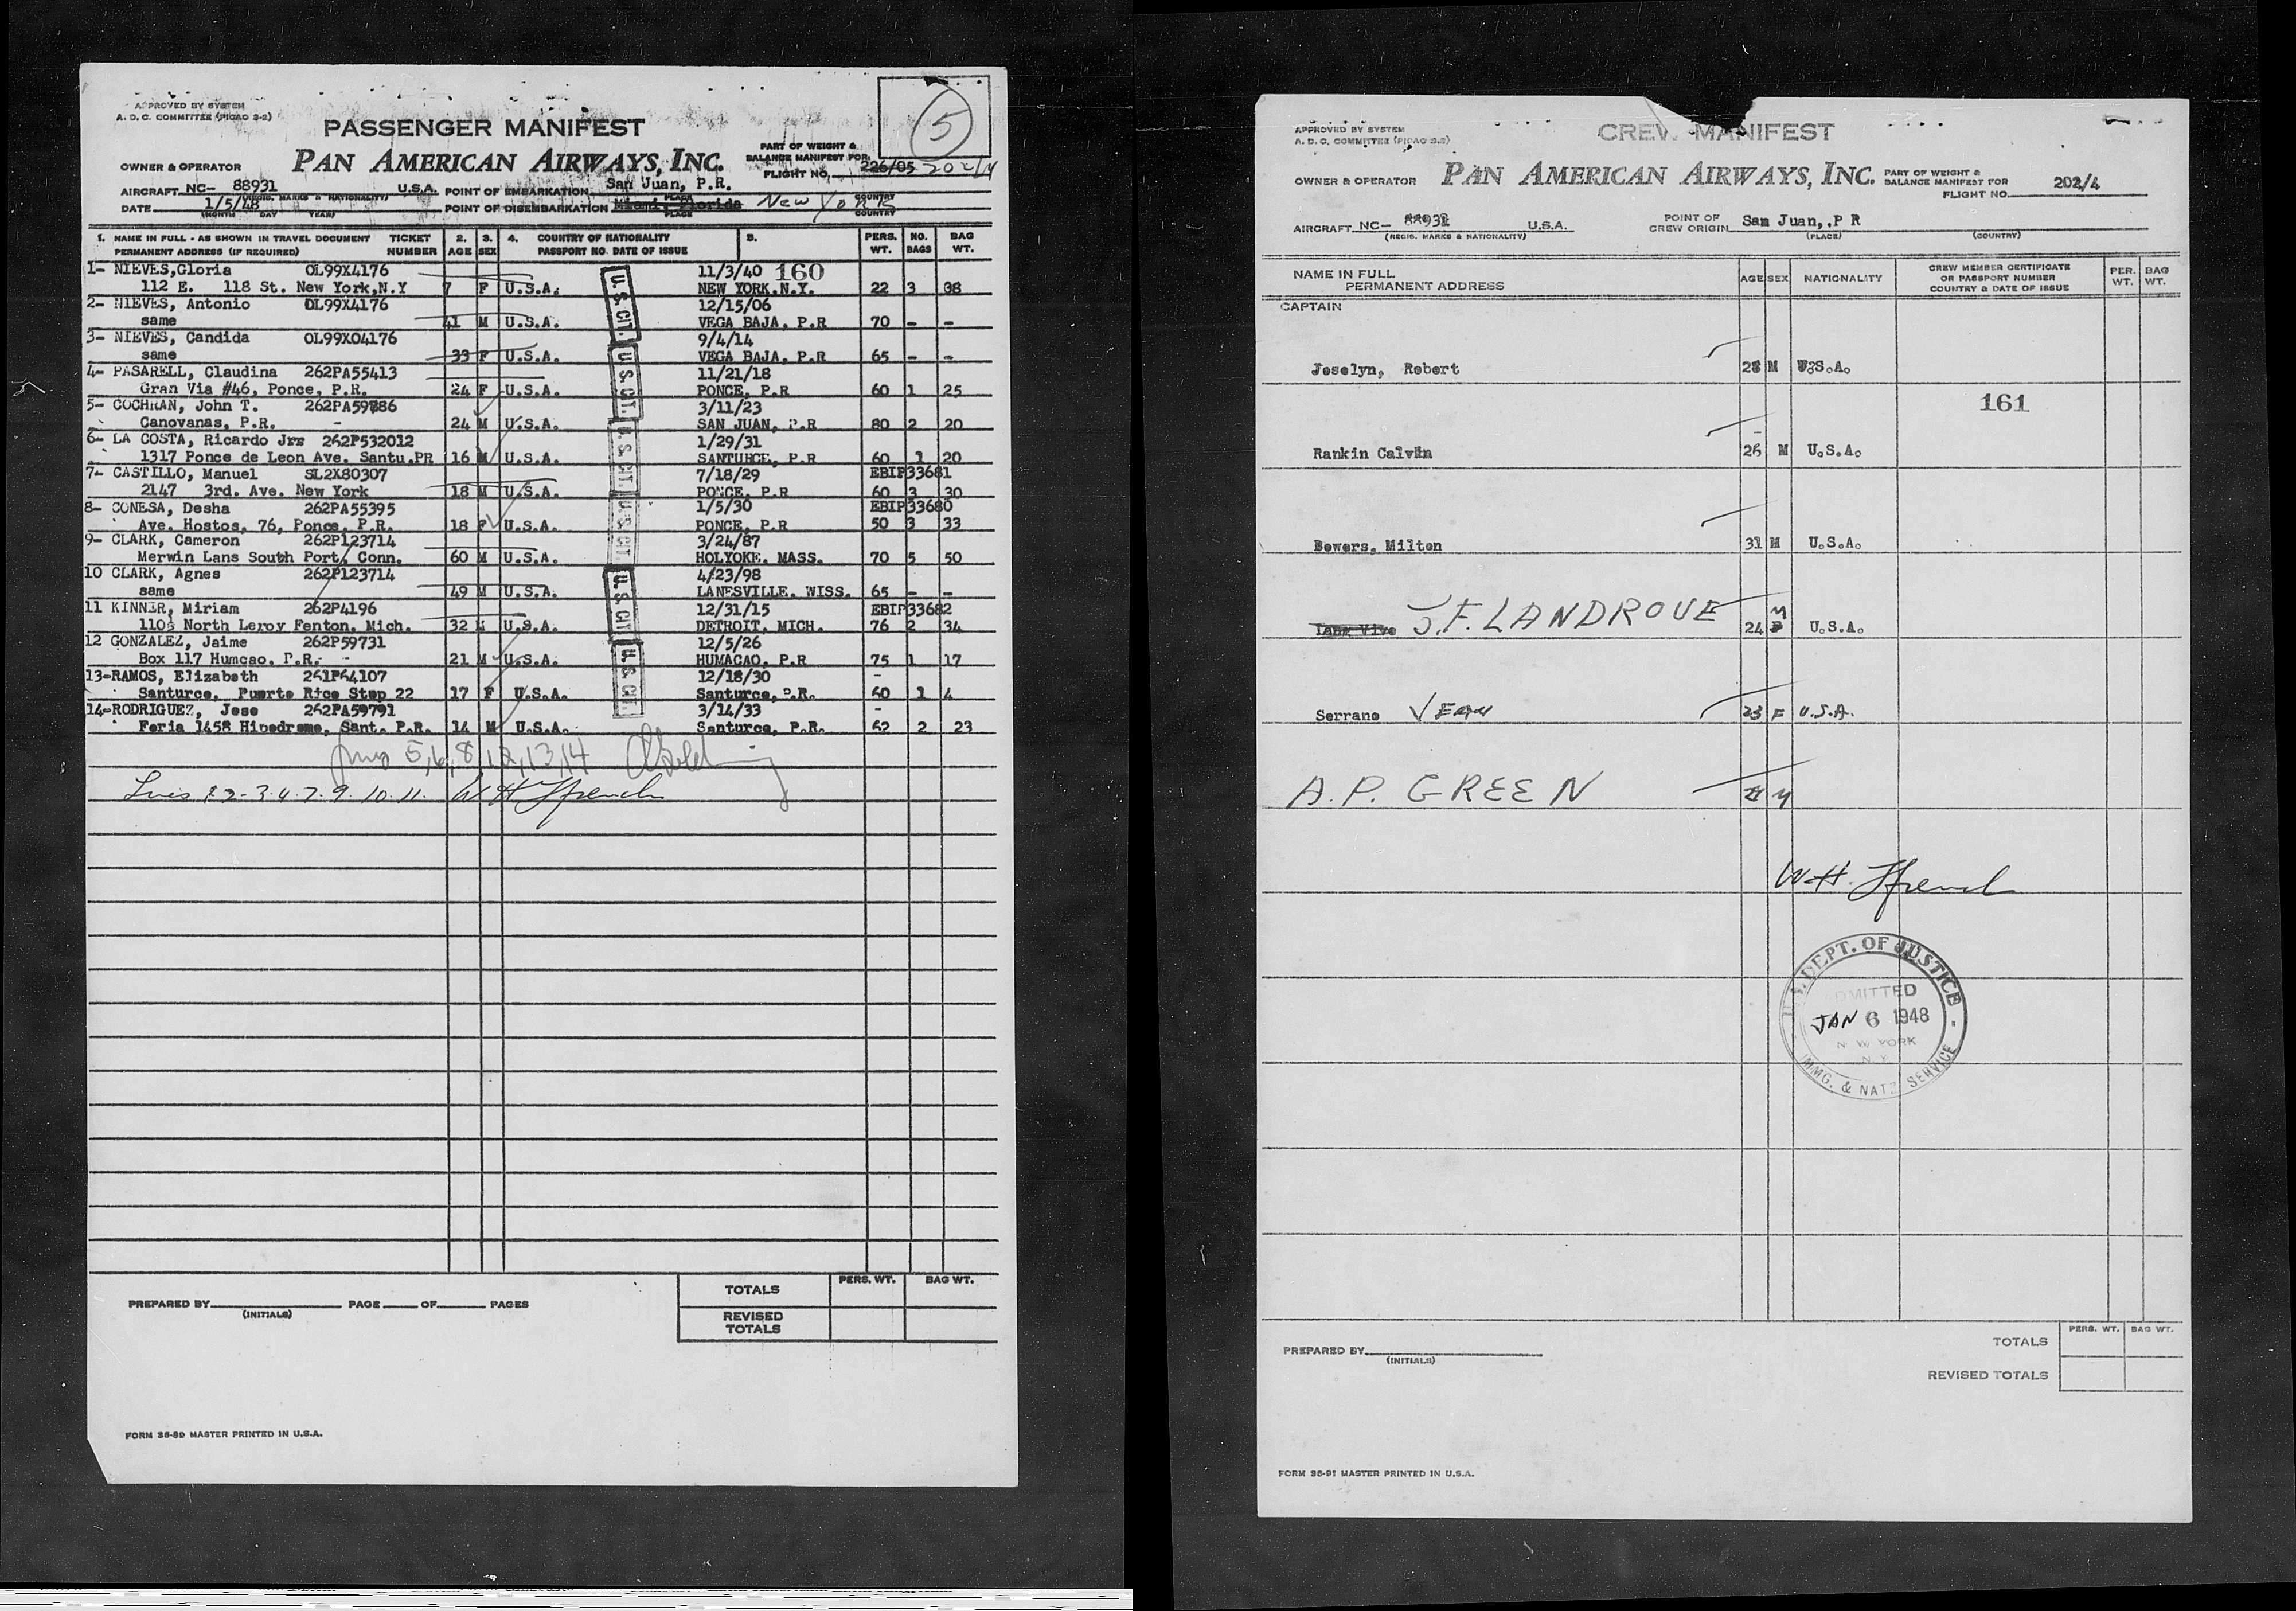 APPROVED BY SYSTEM
A. D. C. COMMITTEE (PICAO 2-2)
5
PASSENGER MANIFEST
OWNER & OPERATOR PAN AMERICAN AIRWAYS, INC. PART OF WEIGHT & BALANCE MANIFEST FOR FLIGHT NO. 226/05 202/4
AIRCRAFT NC- 88931 U.S.A. POINT OF EMBARKATION San Juan, P.R.
(REGIS. MARKS & NATIONALITY) PLACE COUNTRY
DATE 1/5/48 POINT OF DISEMBARKATION Miami, Florida New York
(MONTH DAY YEAR) PLACE COUNTRY
1. NAME IN FULL - AS SHOWN IN TRAVEL DOCUMENT TICKET 2. 3. 4. COUNTRY OF NATIONALITY 5. PERS. NO. BAG
PERMANENT ADDRESS (IF REQUIRED) NUMBER AGE SEX PASSPORT NO. DATE OF ISSUE WT. BAGS WT.
1- NIEVES,Gloria OL99X4176 11/3/40 160
112 E. 118 St. New York,N.Y 7 F U.S.A. NEW YORK.N.Y. 22 3 38
2- NIEVES, Antonio OL99X4176 12/15/06
same 41 M U.S.A. VEGA BAJA, P.R 70 - -
3- NIEVES, Candida OL99X04176 9/4/14
same 33 F U.S.A. VEGA BAJA, P.R 65 - -
4- PASARELL, Claudina 262PA55413 11/21/18
Gran Via #46, Ponce, P.R. 24 F U.S.A. PONCE, P.R 60 1 25
5- COCHRAN, John T. 262PA59886 3/11/23
Canovanas, P.R. - 24 M U.S.A. SAN JUAN, P.R 80 2 20
6- LA COSTA, Ricardo Jrs 262P532012 1/29/31
1317 Ponce de Leon Ave. Santu.PR 16 M U.S.A. SANTURCE, P.R 60 1 20
7- CASTILLO, Manuel SL2X80307 7/18/29 EBIP33681
2147 3rd. Ave. New York 18 M U.S.A. PONCE, P.R 60 3 30
8- CONESA, Desha 262PA55395 1/5/30 EBIP33680
Ave. Hostos, 76, Ponce, P.R. 18 F U.S.A. PONCE, P.R 50 3 33
9- CLARK, Cameron 262P123714 3/24/87
Merwin Lans South Port, Conn. 60 M U.S.A. HOLYOKE, MASS. 70 5 50
10 CLARK, Agnes 262P123714 4/23/98
same 49 M U.S.A. LANESVILLE, WISS. 65 - -
11 KINNER, Miriam 262P4196 12/31/15 EBIP33682
110 North Leroy Fenton, Mich. 32 U.S.A. DETROIT, MICH. 76 2 34
12 GONZALEZ, Jaime 262P59731 12/5/26
Box 117 Humcao, P.R. - 21 M U.S.A. HUMACAO, P.R 75 1 17
13-RAMOS, Elizabeth 261P64107 12/18/30 -
Santurce, Puerto Rico Stop 22 17 F U.S.A. Santurce, P.R. 60 1 4
14-RODRIGUEZ, Jose 262PA59791 3/14/33 -
Feria 1458 Hipodromo, Sant. P.R. 14 M U.S.A. Santurce, P.R. 62 2 23
U.S. CIT.
U.S. CIT.
U.S. CIT.
U.S. CIT.
U.S. CIT.
U.S. CIT.
5,6,8,12,13,14
Lines 1-2-3-4-7-9-10-11. W H Ffrench
PREPARED BY PAGE OF PAGES
(INITIALS)
PERS. WT. BAG WT.
TOTALS
REVISED TOTALS
FORM 36-89 MASTER PRINTED IN U.S.A.
APPROVED BY SYSTEM
A. D. C. COMMITTEE (PICAO 2-2)
CREW MANIFEST
OWNER & OPERATOR PAN AMERICAN AIRWAYS, INC. PART OF WEIGHT & BALANCE MANIFEST FOR FLIGHT NO. 202/4
AIRCRAFT NC- 88931 U.S.A. POINT OF CREW ORIGIN San Juan,,P R
(REGIS. MARKS & NATIONALITY) (PLACE) (COUNTRY)
NAME IN FULL AGE SEX NATIONALITY CREW MEMBER CERTIFICATE OR PASSPORT NUMBER COUNTRY & DATE OF ISSUE PER. WT. BAG WT.
PERMANENT ADDRESS
CAPTAIN
Joselyn, Robert 28 M U.S.A.
161
Rankin Calvin 26 M U.S.A.
Bowers, Milton 31 M U.S.A.
J.F. LANDROVE 24 M U.S.A.
Serrano 23 F U.S.A.
A.P. GREEN M
W.H. Ffrench
U.S. DEPT. OF JUSTICE
ADMITTED
JAN 6 1948
NEW YORK
N.Y.
IMMG. & NATZ. SERVICE
PERS. WT. BAG WT.
TOTALS
PREPARED BY
(INITIALS)
REVISED TOTALS
FORM 36-91 MASTER PRINTED IN U.S.A.